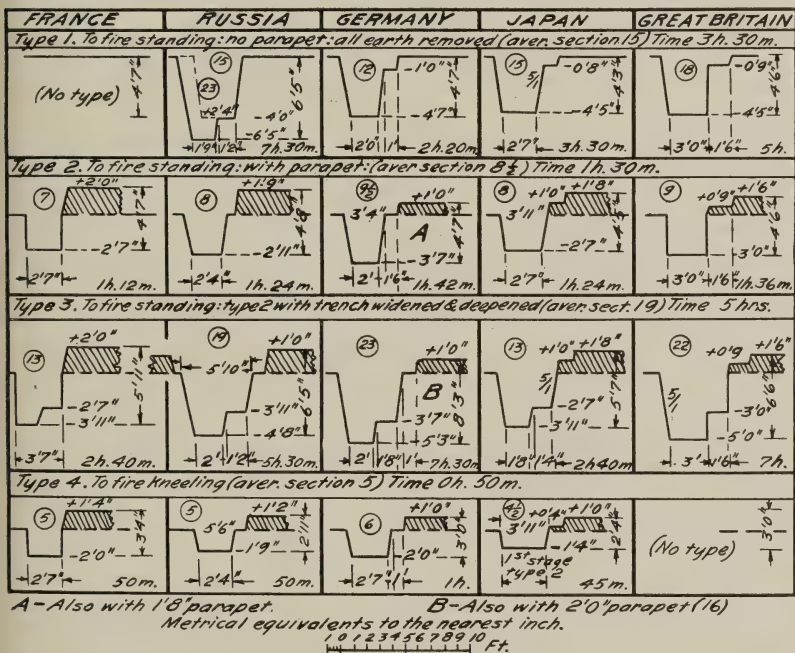 FRANCE RUSSIA GERMANY JAPAN GREAT BRITAIN
Type 1. To fire standing: no parapet: all earth removed (aver. section 15) Time 3h. 30m.
(No type) 4'7"
15 23 +2'4" -4'0" -6'5" 6'5" 1'9" 1'2" 7h.30m.
12 -1'0" -4'7" 4'7" 2'0" 1' 2h.20m
15 5/1 -0'8" -4'5" 4'3" 2'7" 3h.30m.
18 -0'9" -4'5" 4'6" 3'0" 1'6" 5h.
Type 2. To fire standing: with parapet: (aver section 8½) Time 1h. 30m.
7 +2'0" 4'7" -2'7" 2'7" 1h.12m.
8 +1'9" 4'8" -2'11" 2'4" 1h.24m.
9½ +1'0" 3'4" A 4'7" -3'7" 2' 1'6" 1h.42m.
8 +1'0" +1'8" 3'11" 4'5" -2'7" 2'7" 1h.24m
9 +0'9" +1'6" 4'6" -3'0" 3'0" 1'6" 1h.36m
Type 3. To fire standing: type 2 with trench widened & deepened (aver. sect. 19) Time 5 hrs.
13 +2'0" 5'11" -2'7" -3'11" 3'7" 2h.40m.
19 +1'0" 5'10" 6'5" -3'11" -4'8" 2' 1'2" 5h.30m.
23 +1'0" B 8'3" -3'7" -5'3" 2' 1'8" 1' 7h.30m
13 +1'0" +1'8" 5/1 5'7" -2'7" -3'11" 1'8" 1'4" 2h40m
22 +0'9 +1'6" 5/1 6'6" -3'0" -5'0" 3' 1'6" 7h.
Type 4. To fire kneeling (aver. section 5) Time 0h. 50m.
5 +1'4" 3'4" -2'0" 2'7" 50m.
5 +1'2" 5'6" 2'11" -1'9" 2'4" 50m.
6 +1'0" 3'0" 2'0" 2'7" 1' 1h.
4½ +0'4" +1'0" 3'11" 2'4" -1'4" 1st stage type 2 45m.
(No type) 3'0"
A-Also with 1'8" parapet. B-Also with 2'0" parapet (16)
Metrical equivalents to the nearest inch.
1 0 1 2 3 4 5 6 7 8 9 10 Ft.